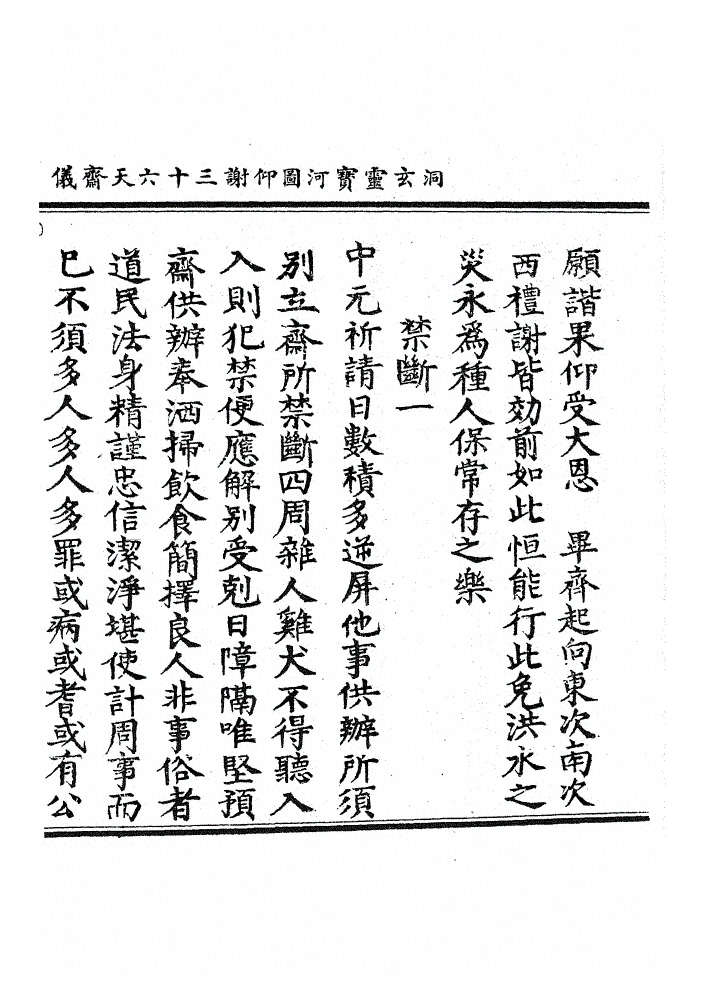 洞玄靈寶河圖仰謝三十六天齋儀
願諧果仰受大恩　畢齊起向東次南次
西禮謝皆効前如此恒能行此免洪水之
災永爲種人保常存之樂
禁斷一
中元祈請日數積多逆屏他事供辦所須
別立齋所禁斷四周雜人雞犬不得聽入
入則犯禁便應解別受剋日障隔唯堅預
齋供辦奉洒掃飲食簡擇良人非事俗者
道民法身精謹忠信潔淨堪使計周事而
已不須多人多人多罪或病或耆或有公